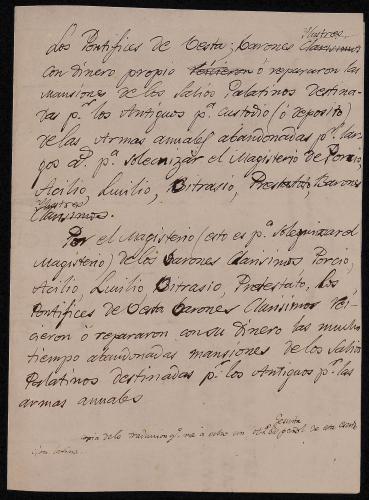 Ilustres
Los Pontifices de Vesta, Varones Clarisimos
con dinero propio hicieron ó repararon las
Mansiones de los Salios Palatinos destina-
das pr los Antiguos pa custodio (ó deposito)
de las Armas anuales abandonadas pr lar-
gos as. pa solecnizar el Magisterio de Porcio,
Acilio, Lucilio, Vitrasio, Prestatato, Varones
Ilustres
Clarisimos.
Por el Magisterio (esto es pa solegnizar el
Magisterio) de los Varones Clarisimos Porcio,
Acilio, Lucilio Vitrasio, Pretestato, Los
Pontifices de Vesta Varones Clarisimos hi-
cieron ó repararon con su dinero las mucho
tiempo abandonadas mansiones de los Salios
Palatinos destinadas pr los Antiguos pr las
armas anuales
Copia de la traducion qe me á echo un Jesuita
de esta
latina.